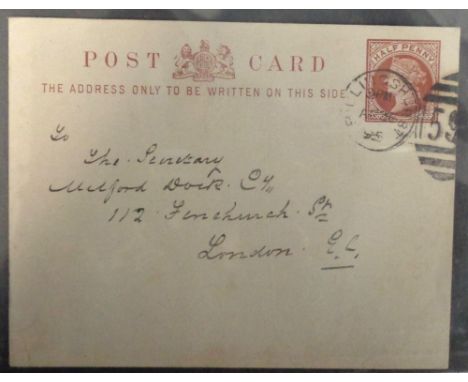 POST CARD
HALF PENNY
THE ADDRESS ONLY TO BE WRITTEN ON THIS SIDE
59
To
The Secretary
Milford Dock Coy
112 Fenchurch St
London E.C.